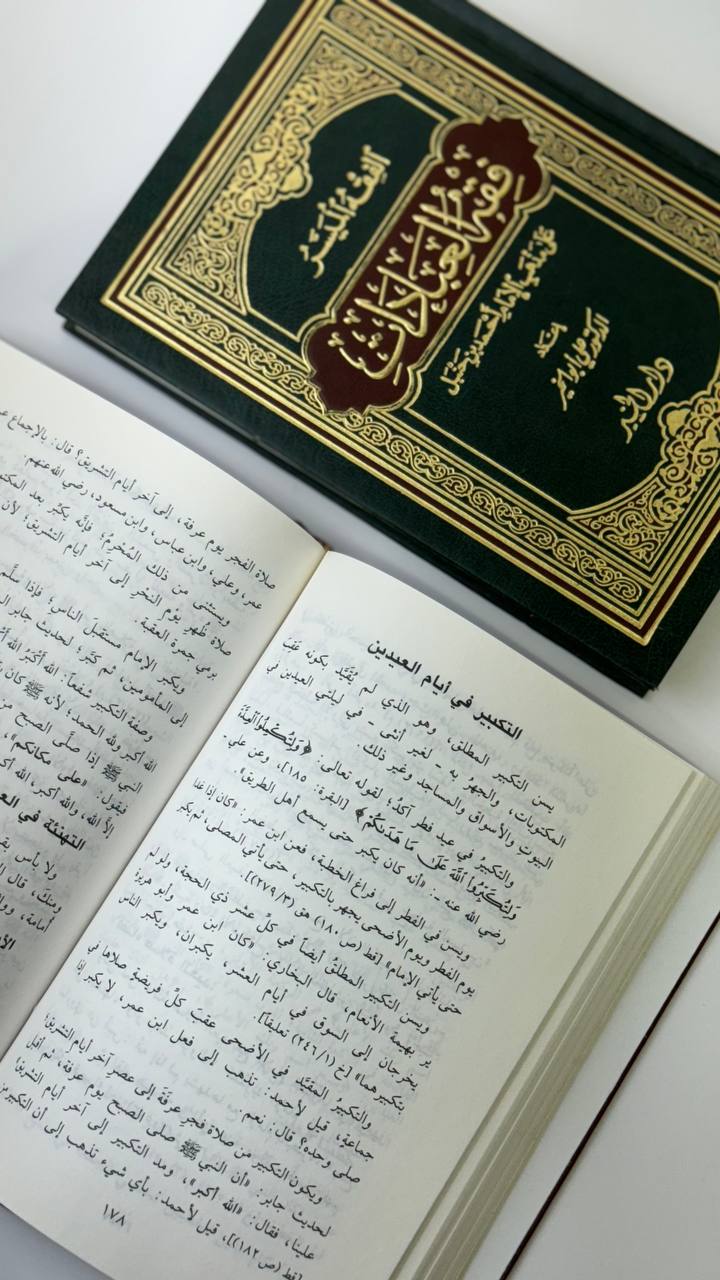 الفقه الميسر
فقه العبادات
على مذهب الإمام أحمد بن حنبل
دار الخير
التكبير في أيام العيدين
يسن التكبير المطلق، وهو الذي لم يُقَيَّد بكونه عَقِبَ
المكتوبات، والجهرُ به - لغير أنثى - في ليلتي العيدين في
البيوت والأسواق والمساجد وغير ذلك.
والتكبيرُ في عيد فطرٍ آكدُ؛ لقوله تعالى: ﴿وَلِتُكْمِلُوا الْعِدَّةَ
وَلِتُكَبِّرُوا اللَّهَ عَلَىٰ مَا هَدَاكُمْ﴾ [البقرة: ١٨٥]، وعن علي -
رضي الله عنه -: «أنه كان يكبر حتى يسمع أهل الطريق».
ويسن في الفطر إلى فراغ الخطبة، فعن ابن عمر: «كان إذا غدا
يوم الفطر ويوم الأضحى يجهر بالتكبير، حتى يأتي المصلى، ثم يكبر
حتى يأتي الإمام» [قط (ص ١٨٠) هق (٢٧٩/٣)].
ويسن التكبير المطلقُ أيضاً في كلِّ عشر ذي الحجة، ولو لم
يرَ بهيمةَ الأنعام، قال البخاري: «كان ابن عمر وأبو هريرة
يخرجان إلى السوق في أيام العشر، يكبران، ويكبر الناس
بتكبيرهما» [خ (٢٤٦/١) تعليقاً].
والتكبيرُ المقيَّد في الأضحى عقبَ كلِّ فريضةٍ صلاها في
جماعةٍ، قيل لأحمد: تذهب إلى فعل ابن عمر، لا يكبر إذا
صلى وحده؟ قال: نعم.
ويكون التكبير من صلاة فجر عرفَةَ إلى عصر آخر أيام التشريق؛
لحديث جابر: «أن النبي ﷺ صلى الصبح يوم عرفة، ثم أقبل
علينا، فقال: «الله أكبر»، ومد التكبير إلى آخر أيام التشريق»
[قط (ص ١٨٢)]، قيل لأحمد: بأي شيء تذهب إلى أن التكبير من
١٧٨
صلاة الفجر يوم عرفة، إلى آخر أيام التشريق؟ قال: بالإجماع
عمر، وعلي، وابن عباس، وابن مسعود، رضي الله عنهم
ويستثنى من ذلك المُحْرِمُ؛ فإنَّه يكبِّر بعد
صلاة ظُهرِ يوم النَّحْر إلى آخر أيام التشريق؛ لأن
يرمي جمرة العقبة.
ويكبر الإمام مستقبلَ الناس؛ فإذا سلَّم
إلى المأمومين، ثم كبَّر؛ لحديث جابر
وصفة التكبير شفعاً: الله أكبرُ الله
الله أكبر ولله الحمد؛ لأنه ﷺ كان
النبي ﷺ إذا صلَّى الصبح من
فيقول: «على مكانكم»،
إلاَّ الله، والله أكبر، الله
التهنئة في
ولا بأس
ومنكَ، قال
أمامة،